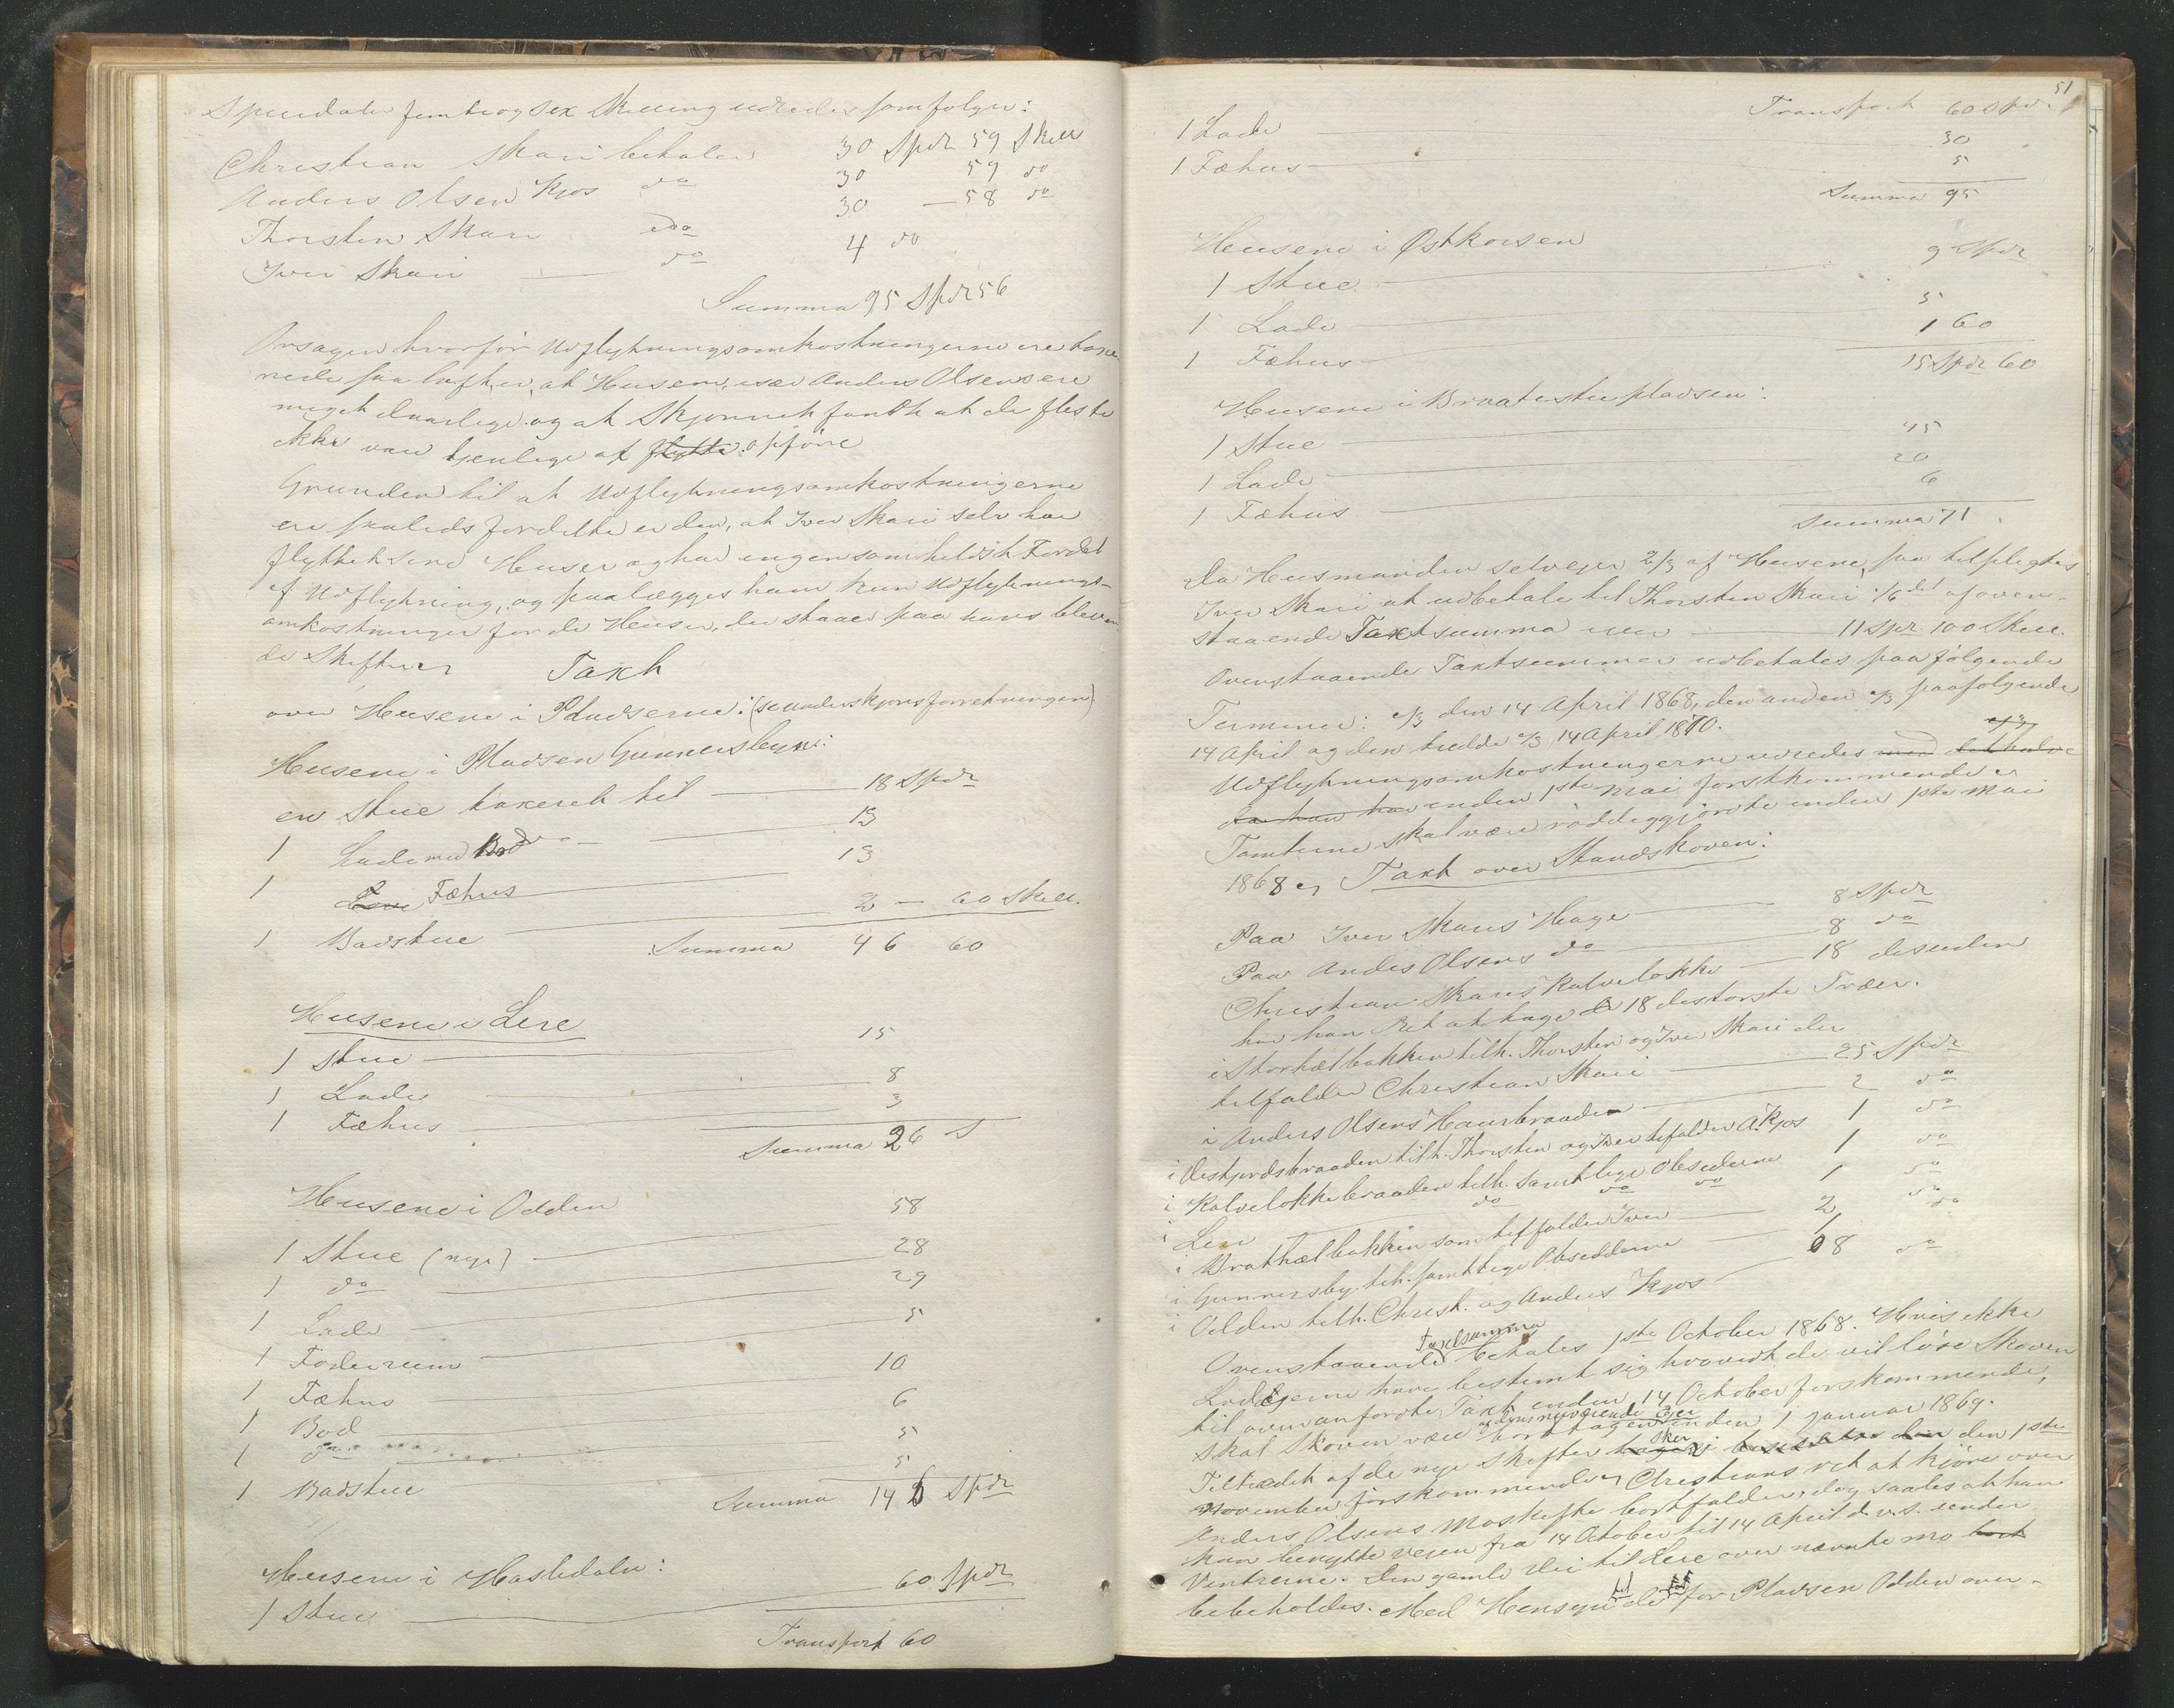 Speciedaler femti og sex Skilling udredes som følger:
Christian Skari betaler 30 Spdr 59 Skill
Anders Olsen Kjos do 30 59 do
Thorsten Skari do 30 — 58 do
Iver Skari — do 4 do
Summa 95 Spdr 56
Orsagen hvorfor Udflytningsomkostningerne ere taxe-
rede saa høit er, at Husene, især Anders Olsens ere
meget daarlige og at Skjønnet fandt at de fleste
ikke vare tjenlige at flytte opføre
Grunden til at Udflytningsomkostningerne
ere saaleds fordelte er den, at Iver Skari selv har
flyttet sine Huser og har ingen somhelst Fordel
af Udflytning, og paalægges ham kun Udflytnings-
omkostninger for de Huser, der staaer paa hans bleven-
de Skifter
Taxt
over Husene i Pladserne: (se underskjønsforretningen)
Husene i Pladsen Gunnersbyen:
en Stue taxeret til — 18 Spdr
1 Lade med Bod do — 13
1 Lave Fæhus — 13
1 Badstue — 2 — 60 Skill.
Summa 46 60
Husene i Lere
1 Stue — 15
1 Lade — 8
1 Fæhus — 3
Summa 26 S
Husene i Odden
1 Stue (nye) — 58
1 do — 28
1 Lade — 29
1 Foderrum — 5
1 Fæhus — 10
1 Bod — 6
1 do — 5
1 Badstue — 5
Summa 146 Spdr
Husene i Hasledalen:
1 Stue — 60 Spdr
Transport 60
51
Transport 60 Spdr
1 Lade — 30
1 Fæhus — 5
Summa 95
Husene i Østkorsen
1 Stue — 9 Spdr
1 Lade — 5
1 Fæhus — 1 60
15 Spdr 60
Husene i Braatestupladsen:
1 Stue — 45
1 Lade — 20
1 Fæhus — 6
Summa 71
Da Husmanden selv ejer 2/3 af Husene, saa tilpligtes
Iver Skari at udbetale til Thorsten Skari 1/6del af oven-
staaende Taxtsumma — 11 Spr. 100 Skill.
Ovenstaaende Taxtsummer udbetales paa følgende
Terminer: 1/3 den 14 April 1868, den anden 1/3 paafølgende
14 April og den tredde 1/3 14 April 1870.
Udflytningsomkostningerne udredes med det halve
inden 1ste Mai førstkommende
Tomterne skal være röddeggjorte inden 1ste Mai
1868 Taxt over Standskoven:
Paa Iver Skaris Hage — 8 Spdr
Paa Andes Olsens do — 8 do
Christian Skaris Kalveløkke — 18 desuden
har han Ret at tage de 18 de største Træer.
i Storhælbakken tilh. Thorsten og Iver Skari der
tilfalder Christian Skari — 25 Spdr
i Anders Olsens Haurbraaden — 2 do
i Vestjordsbraaden tilh. Thorsten og Iver tefalder A. Kjos 1 do
i Kalvelokkebraaden tilh. samtlige Obsederne 1 do
i Lere do do do 1 do
i Brathælbakken som tilfalder Iver — 2 do
i Gunnersby tilh. samtlige Obsedderne — 1 do
i Odden tilh. Christ. og Anders Kjos — 8 do
Ovenstaaende Taxtsumma betales 1ste October 1868. Hvis ikke
Lodejerne have bestemt sig hvorvidt de vil løse Skoven
til ovenanførte Taxt inden 14 October førskommende,
skal Skoven være borttagen af dens nuværende Ejer inden 1 Januar 1869.
Tiltrædet af de nye Skifter sker den 1ste
November førskommende Christians ret at kjøre over
Anders Olsens Moskifte bortfalder, dog saales at han
kan benytte vejen fra 14 October til 14 April d.v.s. under
Vintrerne. Den gamle Vei til Lere over nævnte mo bort
bebeholdes. Med Hensyn til de for Pladsen Odden over-